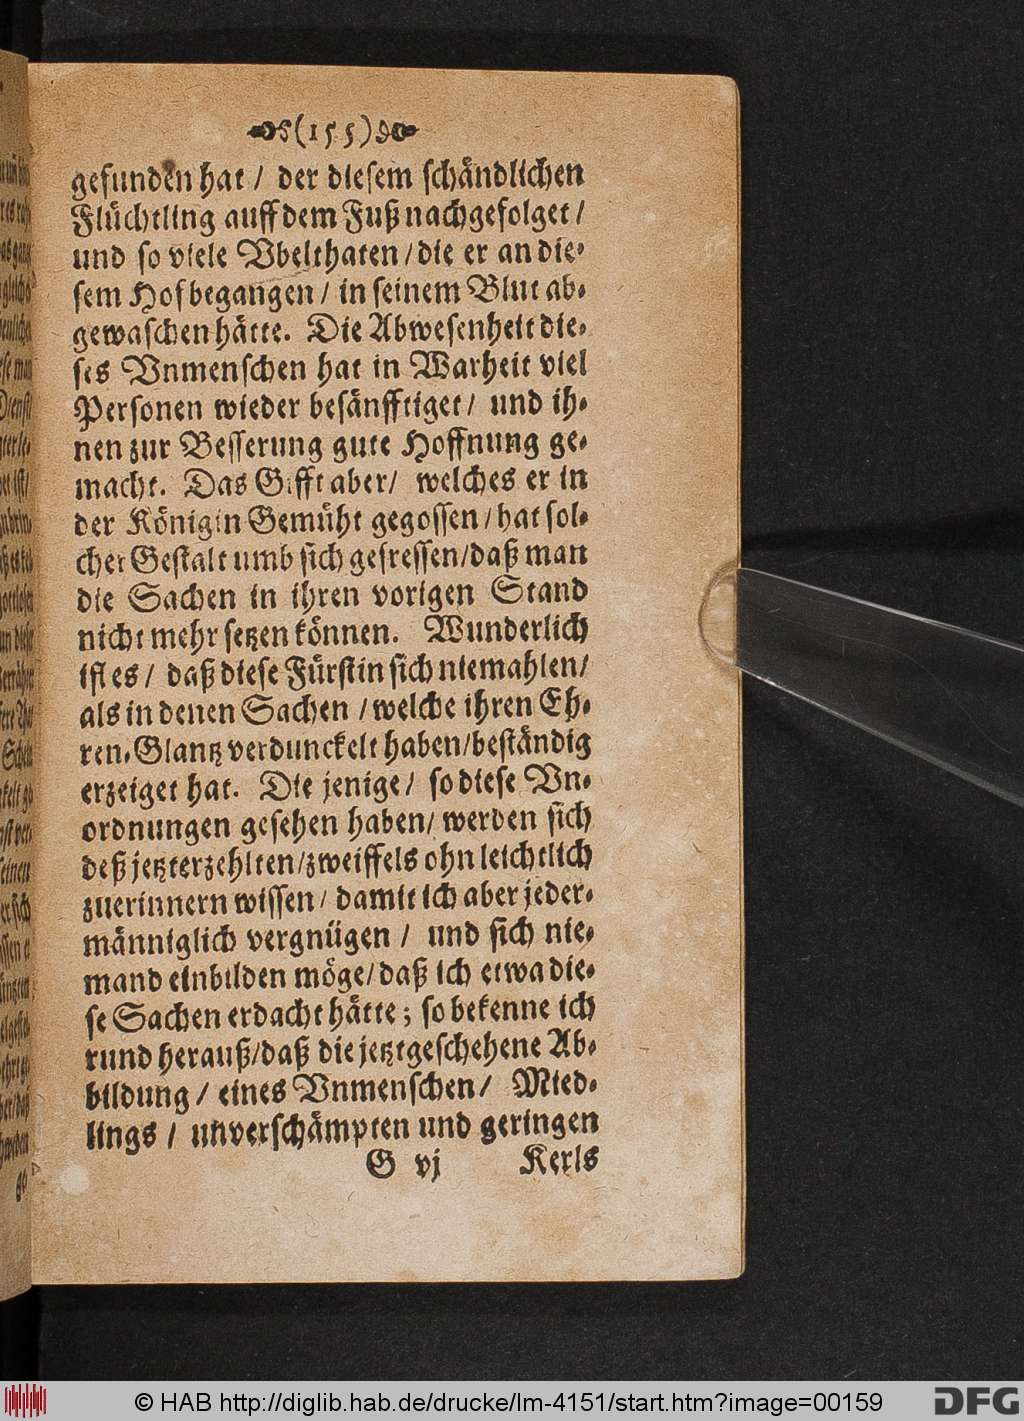 (155)
gefunden hat / der diesem schändlichen
Flüchtling auff dem Fuß nachgefolget /
und so viele Vbelthaten / die er an die-
sem Hof begangen / in seinem Blut ab-
gewaschen hätte. Die Abwesenheit die-
ses Vnmenschen hat in Warheit viel
Personen wieder besänfftiget / und ih-
nen zur Besserung gute Hoffnung ge-
macht. Das Gifft aber / welches er in
der Königin Gemüht gegossen / hat sol-
cher Gestalt umb sich gefressen / daß man
die Sachen in ihren vorigen Stand
nicht mehr setzen können. Wunderlich
ist es / daß diese Fürstin sich niemahlen /
als in denen Sachen / welche ihren Eh-
ren-Glantz verdunckelt haben / beständig
erzeiget hat. Die jenige / so diese Vn-
ordnungen gesehen haben / werden sich
deß jetzterzehlten / zweiffels ohn leichtlich
zuerinnern wissen / damit ich aber jeder-
männiglich vergnügen / und sich nie-
mand einbilden möge / daß ich etwa die-
se Sachen erdacht hätte ; so bekenne ich
rund herauß / daß die jetztgeschehene Ab-
bildung / eines Vnmenschen / Mied-
lings / unverschämpten und geringen
G vj Kerls
© HAB http://diglib.hab.de/drucke/lm-4151/start.htm?image=00159
DFG